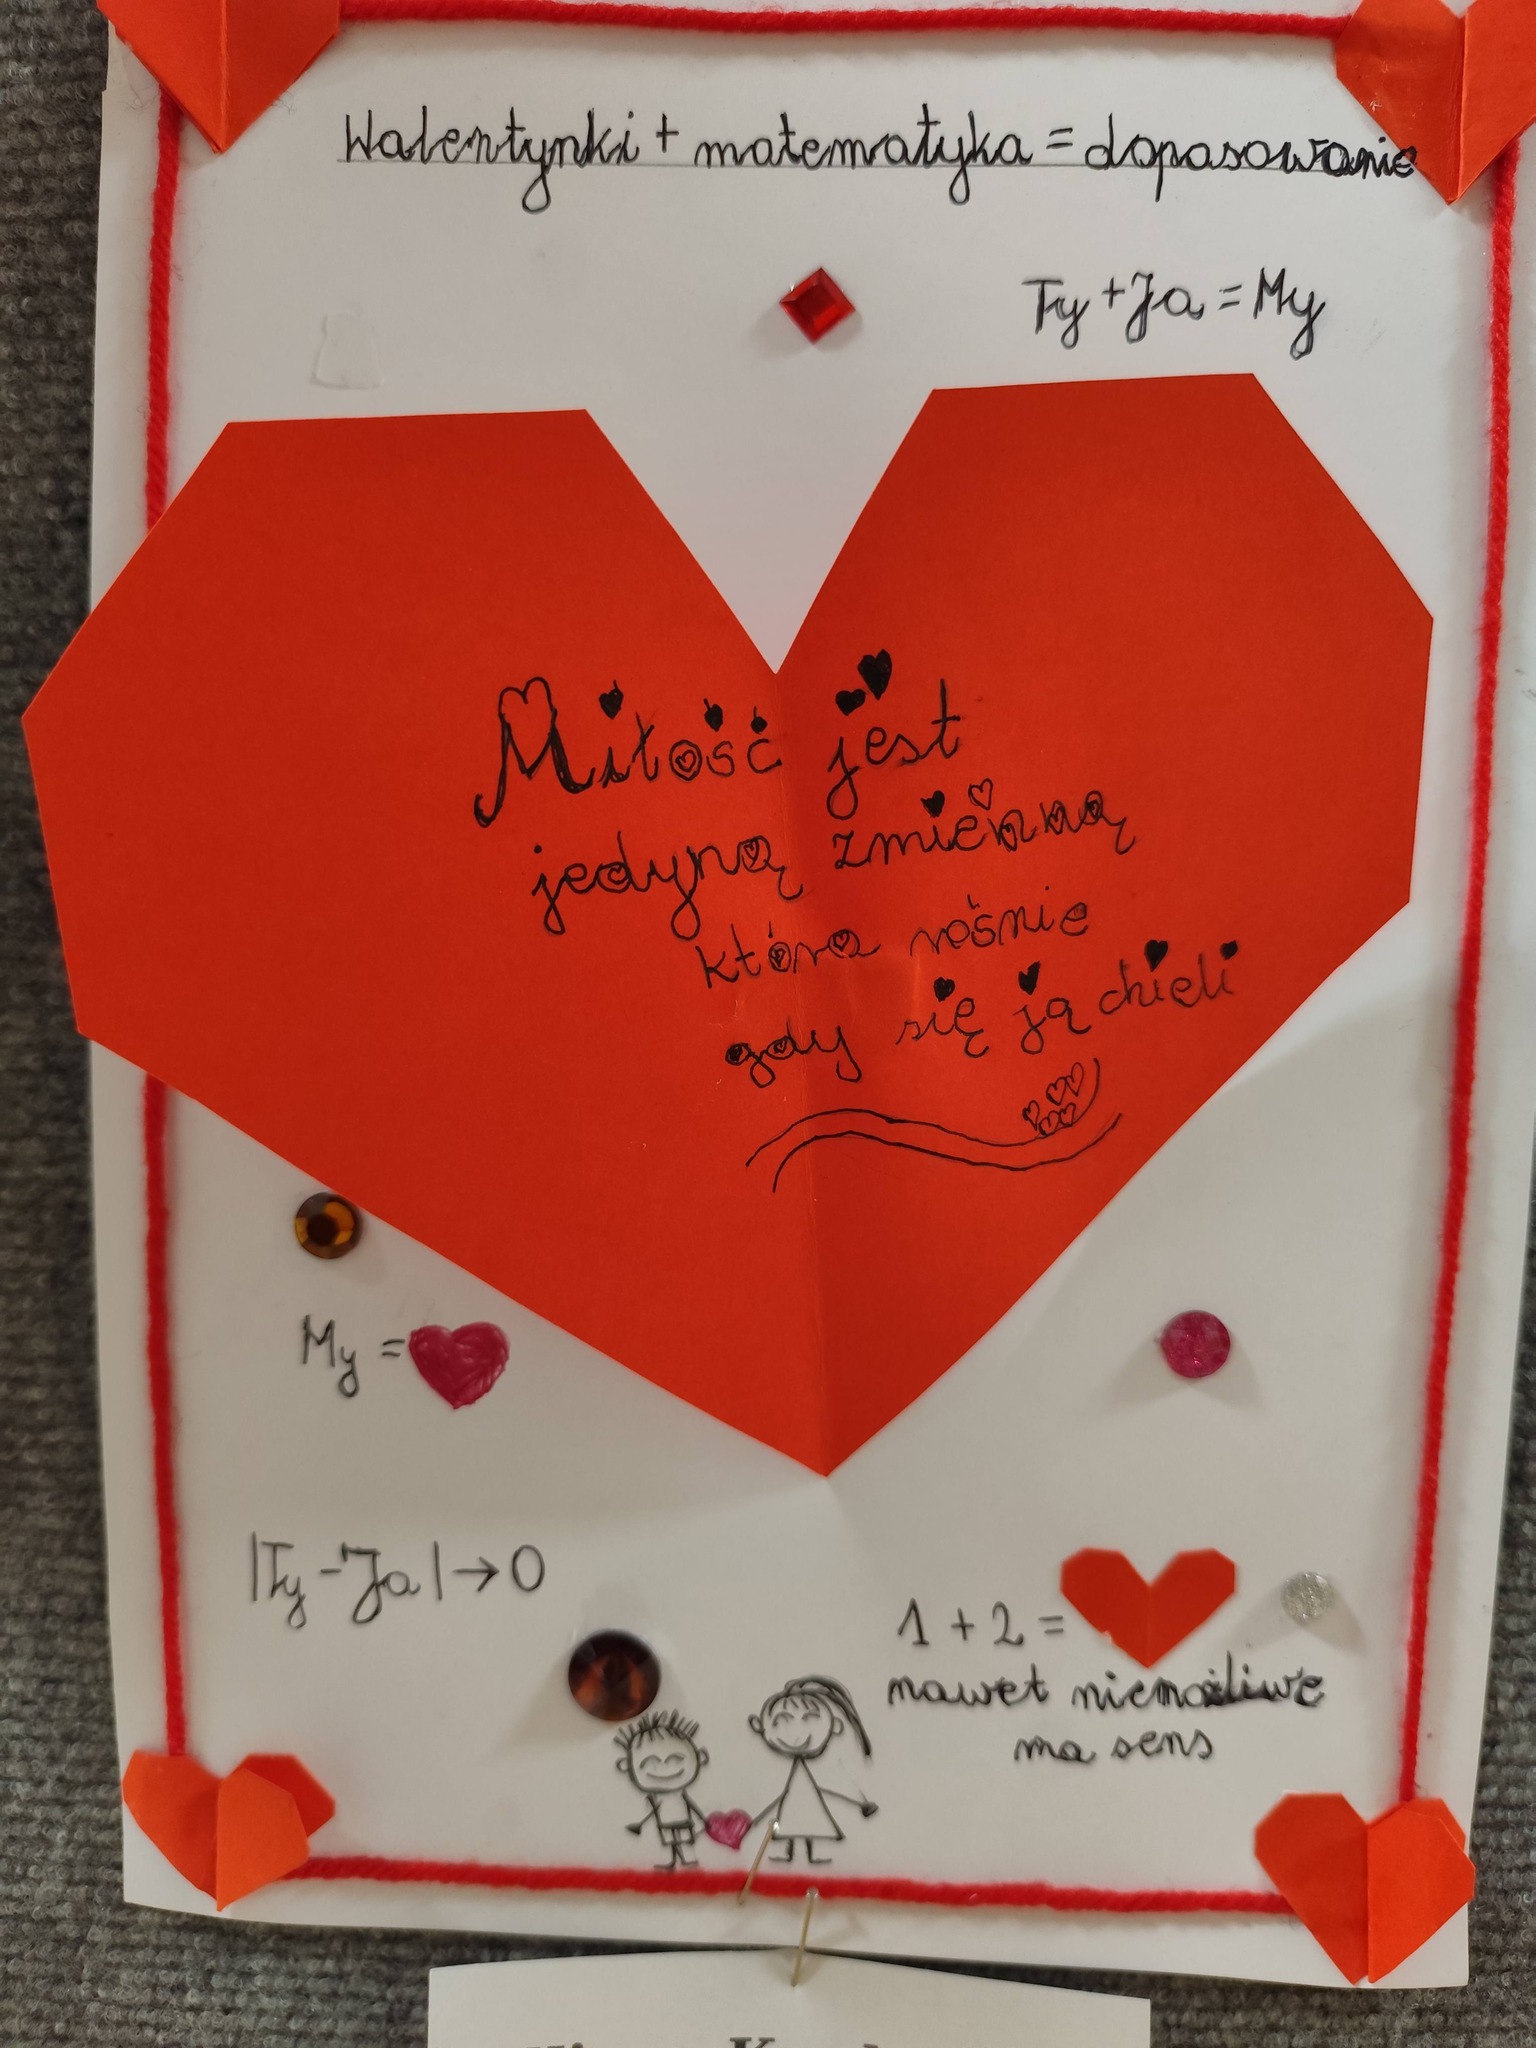 Walentynki + matematyka = dopasowanie
Ty + Ja = My
Miłość jest
jedyną zmienną
która rośnie
gdy się ją dzieli
My = ♥
|Ty - Ja| → 0
1 + 2 = ♥
nawet niemożliwe
ma sens